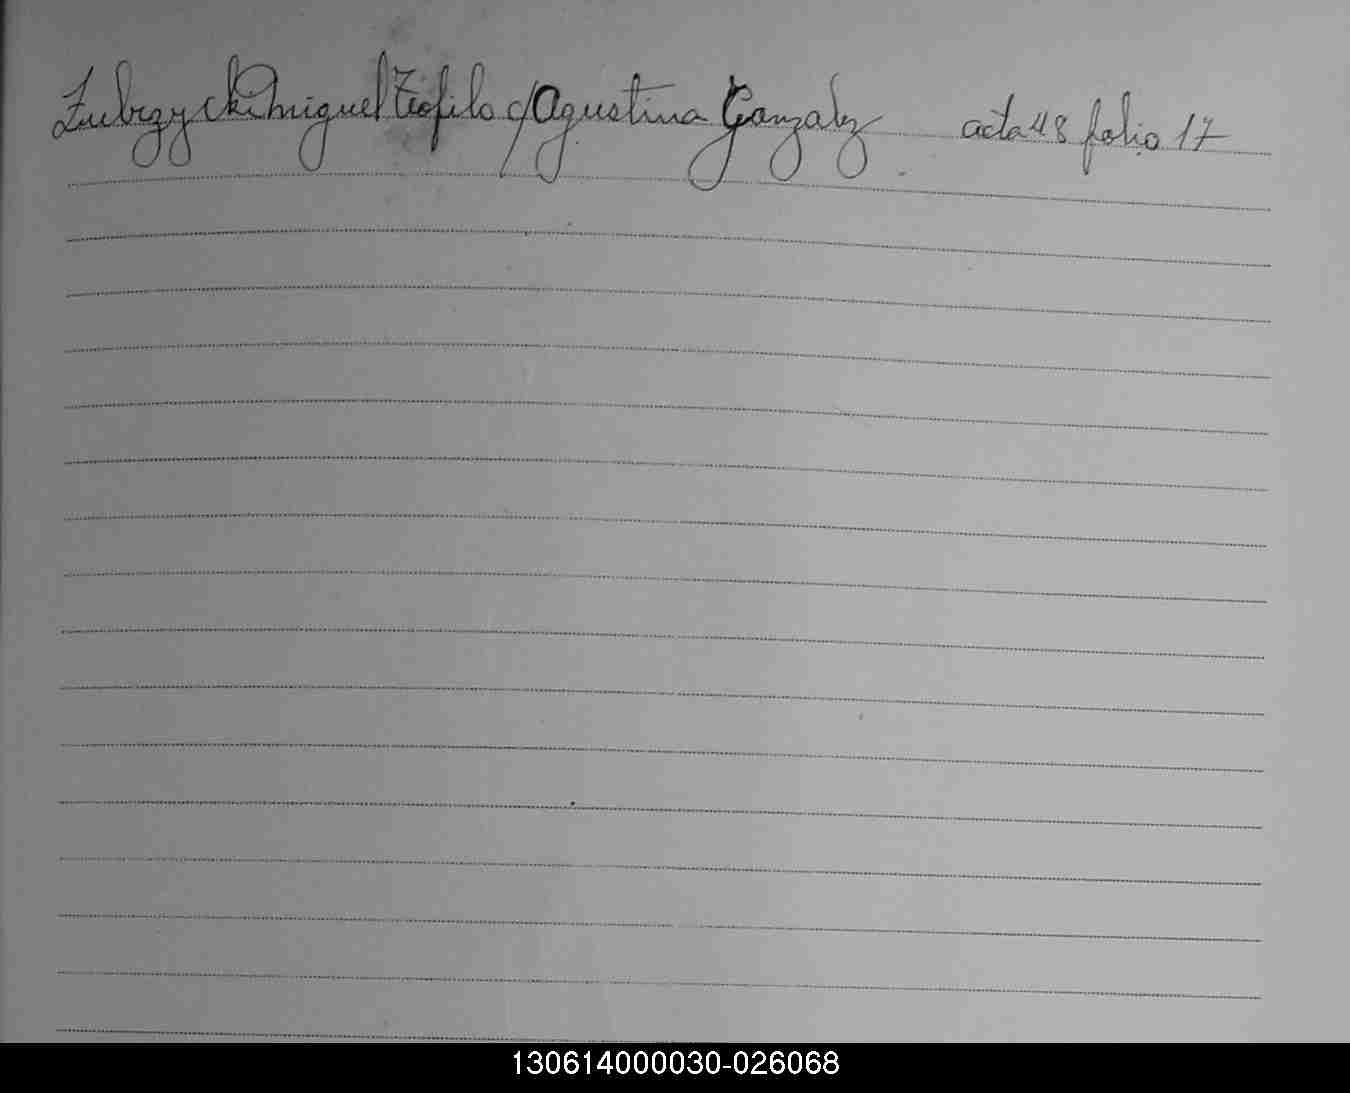 Zubrzycki Miguel Teofilo c/ Agustina Gonzalez acta 48 folio 17
130614000030-026068